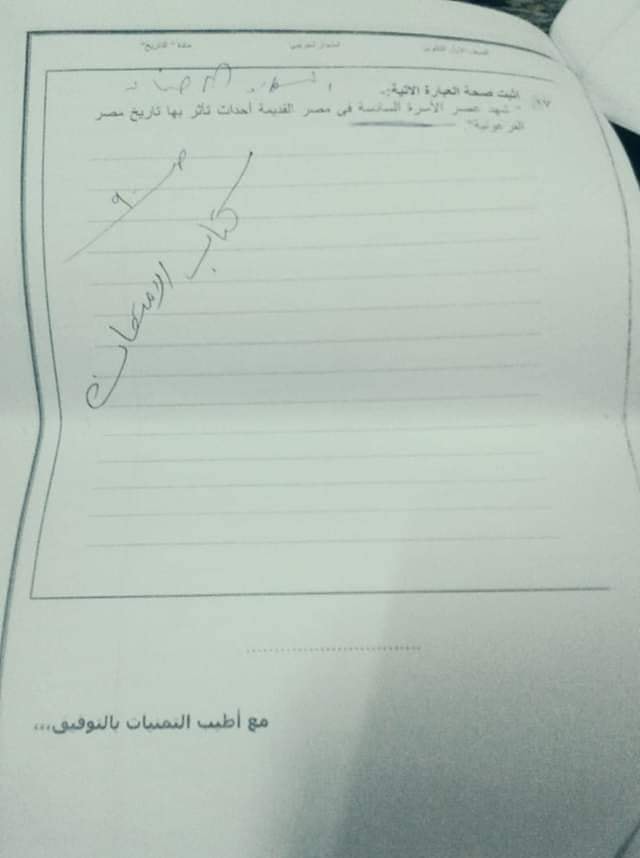 الصف الأول الثانوي اختبار تجريبي مادة "التاريخ"
٢٧. اثبت صحة العبارة الاتية:.
" شهد عصر الأسرة السادسة في مصر القديمة أحداث تأثر بها تاريخ مصر
الفرعونية"
كتاب الامتحان
مع أطيب التمنيات بالتوفيق...